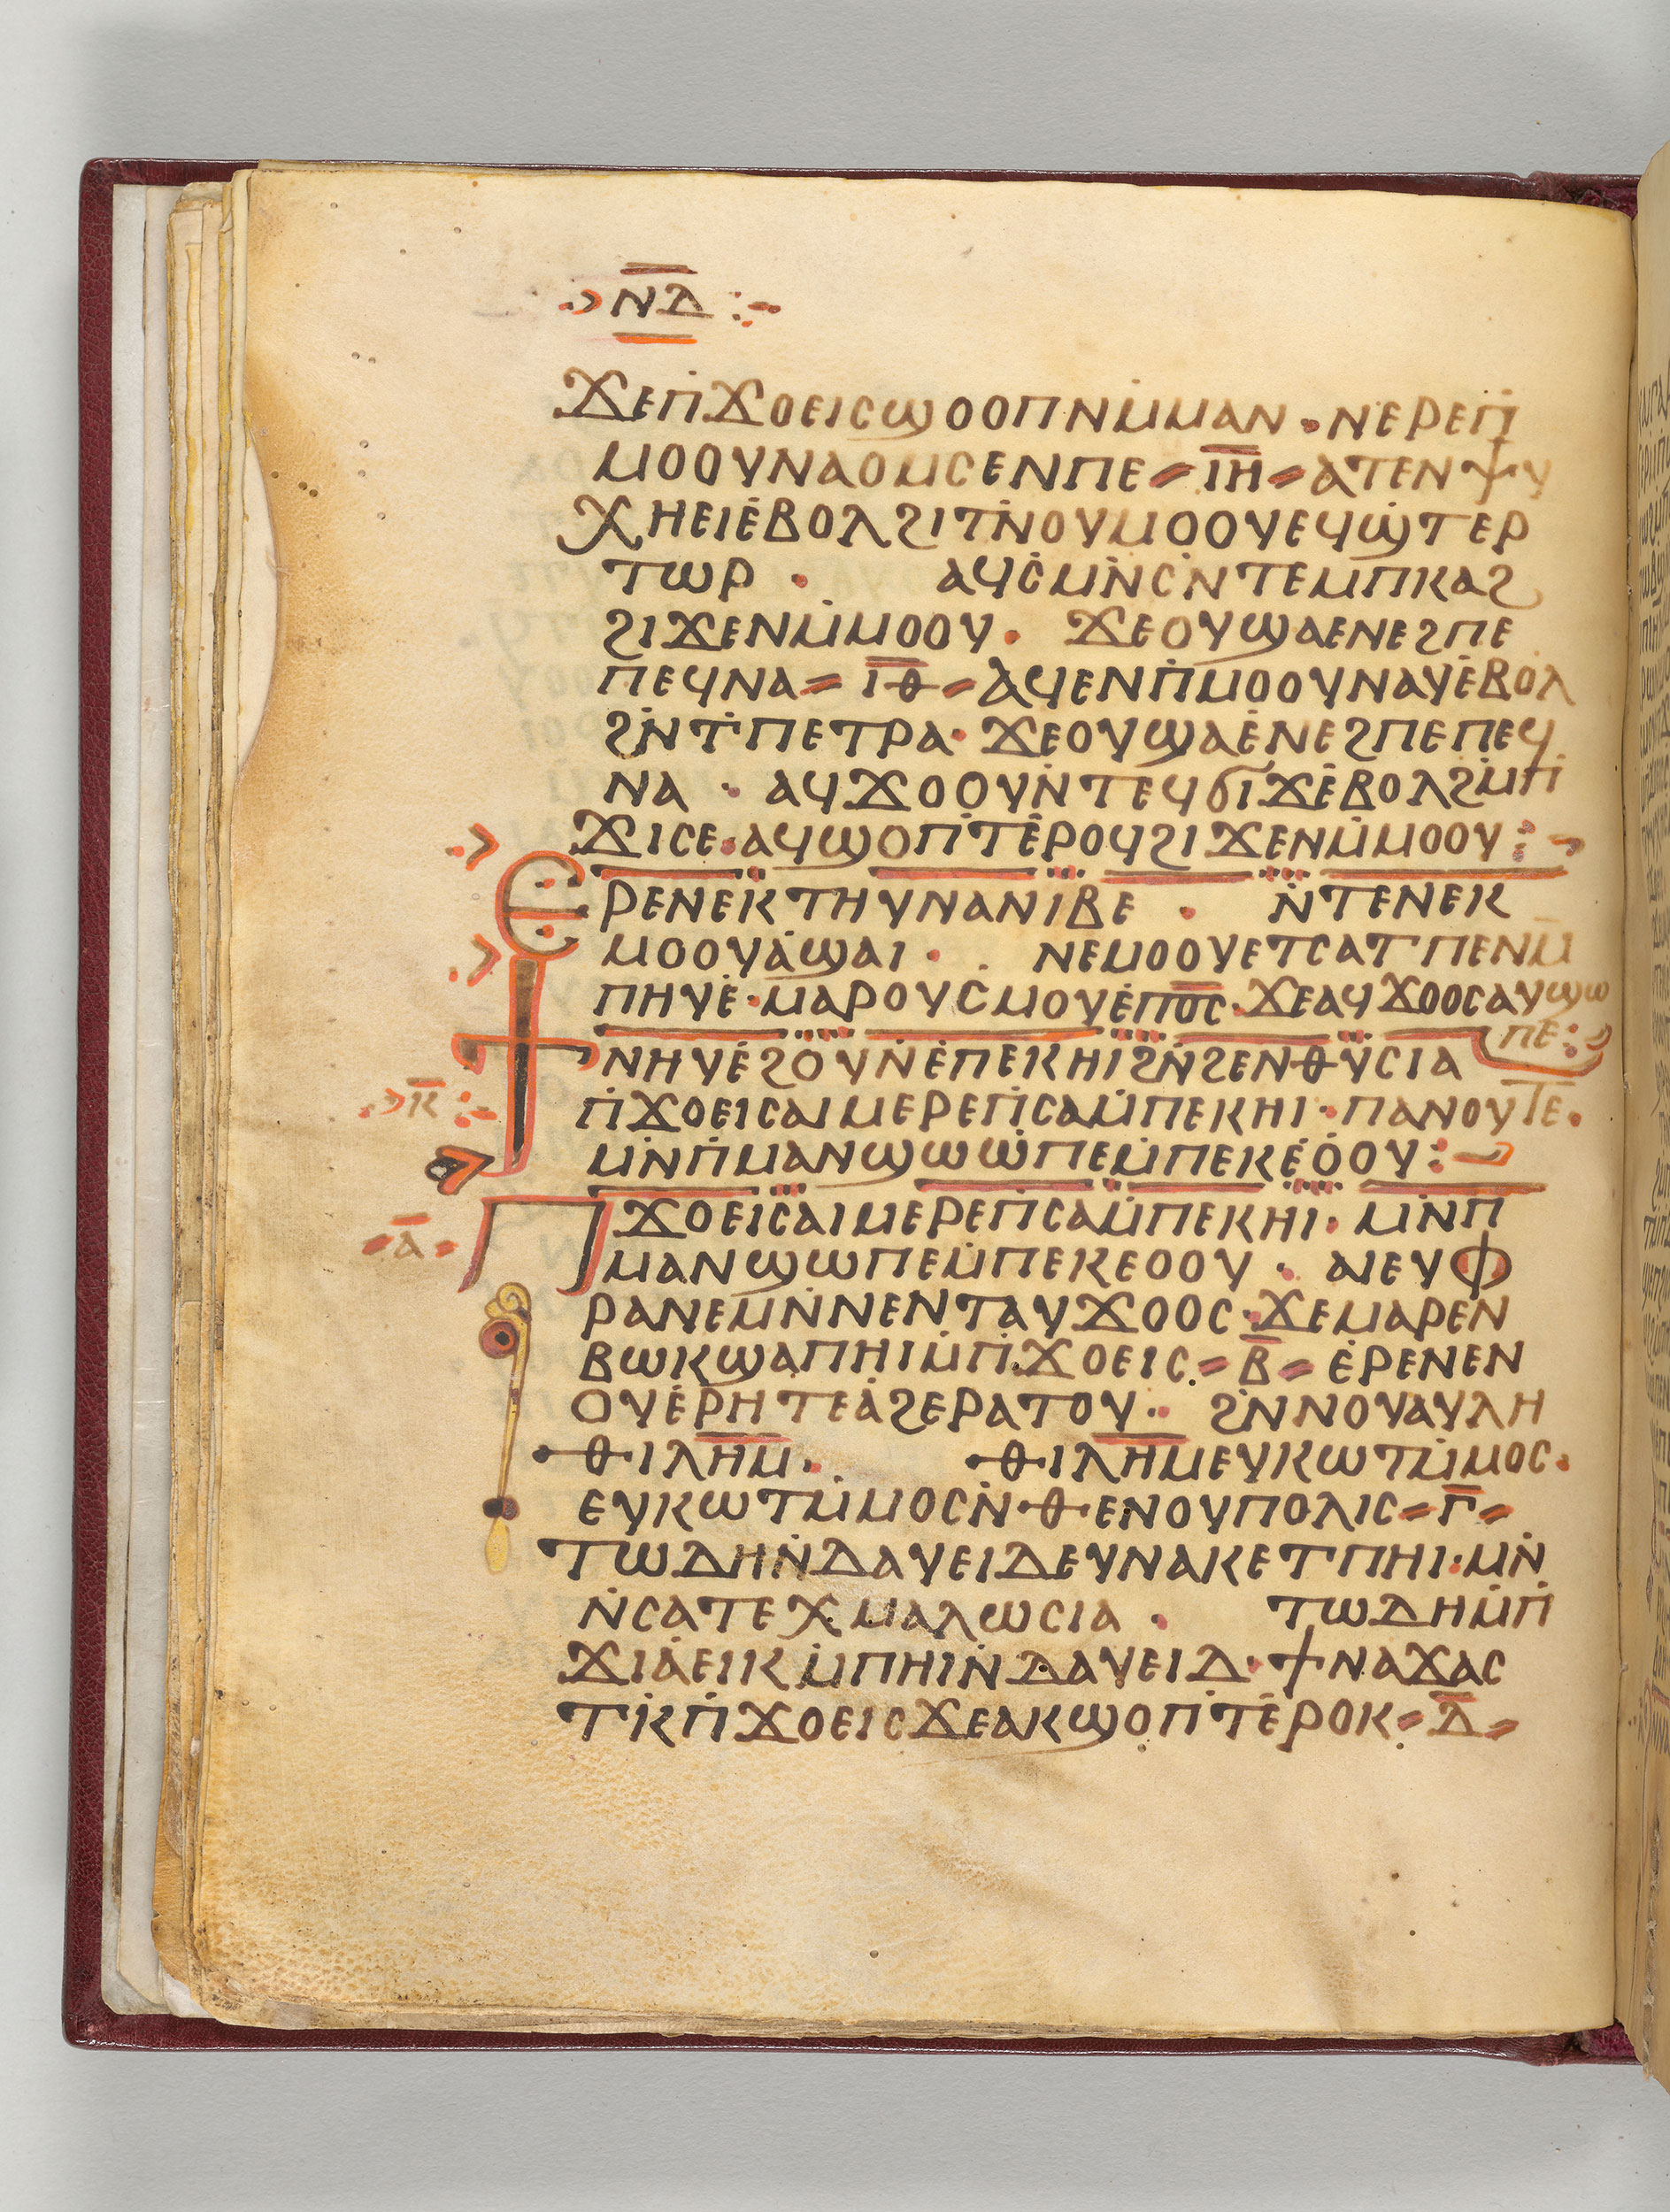 ⲛ̅ⲇ̅
ϫⲉⲡ̇ϫⲟⲉⲓⲥϣⲟⲟⲡⲛⲙ̇ⲙⲁⲛ · ⲛ̇ⲉⲣⲉⲡ̇
ⲙⲟⲟⲩⲛⲁⲟⲙⲥⲉⲛⲡⲉ = ⲓ̅ⲏ̅ = ⲁⲧⲉⲛⲯⲩ
ⲭⲏⲉⲓⲉ̇ⲃⲟⲗϩⲓⲧⲛ̇ⲟⲩⲙⲟⲟⲩⲉϥϣ̇ⲧⲉⲣ
ⲧⲱⲣ · ⲁϥⲥ̇ⲙⲛ̇ⲥⲛ̇ⲧⲉⲙⲡⲕⲁϩ
ϩⲓϫⲉⲛⲙ̇ⲙⲟⲟⲩ · ϫⲉⲟⲩϣⲁⲉⲛⲉϩⲡⲉ
ⲡⲉϥⲛⲁ = ⲓ̅ⲑ̅ = ⲁϥⲉⲛⲡ̇ⲙⲟⲟⲩⲛⲁⲩⲉ̇ⲃⲟⲗ
ϩⲛ̇ⲧ̇ⲡⲉⲧⲣⲁ · ϫⲉⲟⲩϣⲁⲉ̇ⲛⲉϩⲡⲉⲡⲉϥ
ⲛⲁ · ⲁϥϫⲟⲟⲩⲛ̇ⲧⲉϥϭⲓϫⲉ̇ⲃⲟⲗϩⲙ̇ⲡ̇
ϫⲓⲥⲉ · ⲁϥϣⲟⲡ̇ⲧ̇ⲉ̇ⲣⲟϥϩⲓϫⲉⲛⲙ̇ⲙⲟⲟⲩ :
ⲉⲣⲉⲛⲉⲕⲧⲏⲩⲛⲁⲛⲓⲃⲉ · ⲛ̇ⲧⲉⲛⲉⲕ
ⲙⲟⲟⲩⲁ̇ϣⲁⲓ · ⲛⲉⲙⲟⲟⲩⲉⲧⲥⲁⲧⲡⲉⲛⲙ̅
ⲡⲏⲩⲉ̇ · ⲙⲁⲣⲟⲩⲥⲙⲟⲩⲉ̇ⲡⲟ̅ⲥ̅ · ϫⲉⲁϥϫⲟⲟⲥⲁⲩϣⲱ
ⲡⲉ :
ϯⲛⲏⲩⲉ̇ϩⲟⲩⲛ̇ⲉ̇ⲡⲉⲕⲏⲓϩⲛ̇ϩⲉⲛⲑⲩⲥⲓⲁ
ⲕ̅ ⲡ̇ϫⲟⲉⲓⲥⲁⲓⲙⲉⲣⲉⲡ̇ⲥⲁⲙ̇ⲡⲉⲕⲏⲓ · ⲡⲁⲛⲟⲩⲧⲉ ·
ⲙ̇ⲛ̇ⲡ̇ⲙⲁⲛϣⲱⲱ̇ⲡⲉⲙ̇ⲡⲉⲕⲉ̇ⲟ̇ⲟⲩ :
ⲁ̅ ⲡϫⲟⲉⲓⲥⲁⲓⲙⲉⲣⲉⲡ̇ⲥⲁⲙ̇ⲡⲉⲕⲏⲓ · ⲙⲛ̇ⲡ
ⲙⲁⲛϣⲱⲡⲉⲙ̇ⲡⲉⲕⲉⲟⲟⲩ · ⲁⲓⲉⲩⲫ
ⲣⲁⲛⲉⲙⲛ̇ⲛⲉⲛⲧⲁⲩϫⲟⲟⲥ · ϫⲉⲙⲁⲣⲉⲛ
ⲃⲱⲕϣⲁⲡⲏⲓⲙ̇ⲡ̇ϫⲟⲉⲓⲥ = ⲃ̅ = ⲉ̇ⲣⲉⲛⲉⲛ
ⲟⲩⲉ̇ⲣⲏⲧⲉⲁ̇ϩⲉⲣⲁⲧⲟⲩ · ϩⲛ̇ⲛⲟⲩⲁⲩⲗⲏ
ⲑⲓⲗ̅ⲏ̅ⲙ̅ · ⲑⲓⲗ̅ⲏ̅ⲙ̅ⲉⲩⲕⲱⲧⲙ̇ⲙⲟⲥ ·
ⲉⲩⲕⲱⲧⲙ̇ⲙⲟⲥⲛ̇ⲑⲉⲛⲟⲩⲡⲟⲗⲓⲥ = ⲅ̅ =
ⲧⲱⲇⲏⲛ̇ⲇⲁⲩⲉⲓⲇⲉⲩⲛⲁⲕⲉⲧⲡⲏⲓ · ⲙⲛ̇
ⲛ̇ⲥⲁⲧⲉⲭⲙⲁⲗⲱⲥⲓⲁ · ⲧⲱⲇⲏⲙ̇ⲡ̇
ϫⲓⲁ̇ⲉⲓⲕⲙ̇ⲡⲏⲓⲛ̇ⲇⲁⲩⲉⲓⲇ · ϯⲛⲁϫⲁⲥ
ⲧⲕ̇ⲡ̇ϫⲟⲉⲓⲥϫⲉⲁⲕϣⲟⲡ̇ⲧ̇ⲉ̇ⲣⲟⲕ = ⲇ̅ =